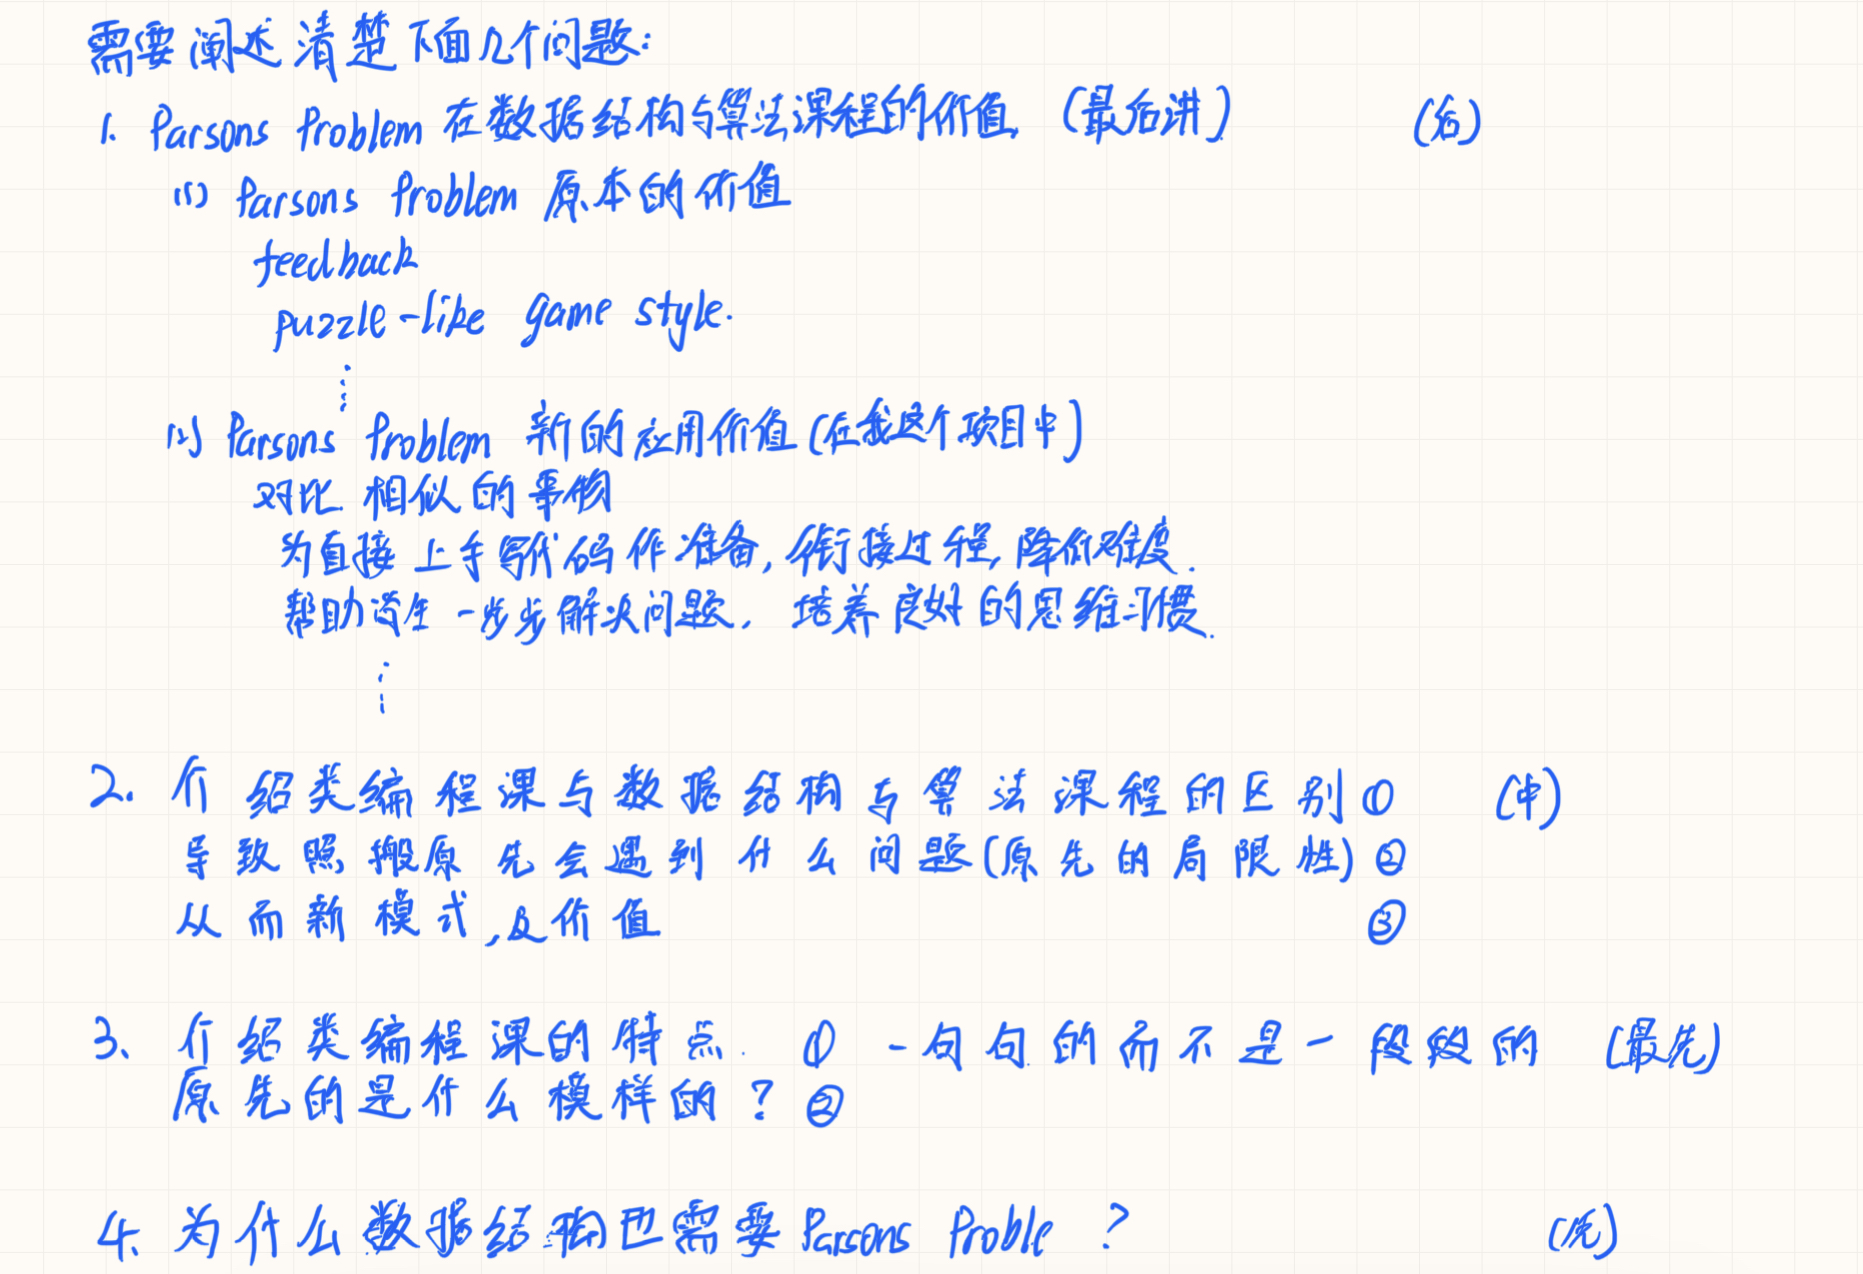 需要阐述清楚下面几个问题:
1. Parsons Problem 在数据结构与算法课程的价值 (最后讲) (后)
(1) Parsons Problem 原本的价值
feedback
puzzle-like game style.
⋮
(2) Parsons Problem 新的应用价值(在我这个项目中)
对比相似的事物
为直接上手写代码作准备,衔接过程,降低难度.
帮助学生一步步解决问题, 培养良好的思维习惯.
⋮
2. 介绍类编程课与数据结构与算法课程的区别① (中)
导致照搬原先会遇到什么问题(原先的局限性)②
从而新模式,及价值 ③
3、介绍类编程课的特点. ① 一句句的而不是一段段的 (最先)
原先的是什么模样的?②
4. 为什么数据结构也需要Parsons Proble ? (先)